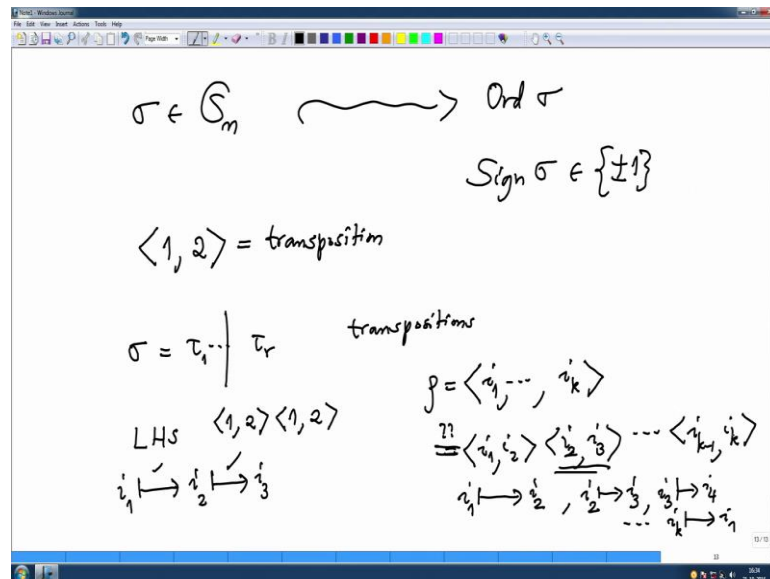 Note1 - Windows Journal
File Edit View Insert Actions Tools Help
Page Width
σ ∈ 𝔖ₙ ⟶ Ord σ
Sign σ ∈ {±1}
⟨1, 2⟩ = transposition
σ = τ₁ ⋯ | τᵣ transpositions
ρ = ⟨i₁, ⋯, iₖ⟩
LHS ⟨1, 2⟩ ⟨1, 2⟩
?? = ⟨i₁, i₂⟩ ⟨i₂, i₃⟩ ⋯ ⟨iₖ₋₁, iₖ⟩
i₁ ↦ i₂ ↦ i₃
i₁ ↦ i₂ , i₂ ↦ i₃, i₃ ↦ i₄
⋯ iₖ ↦ i₁
13/13
33
16:34